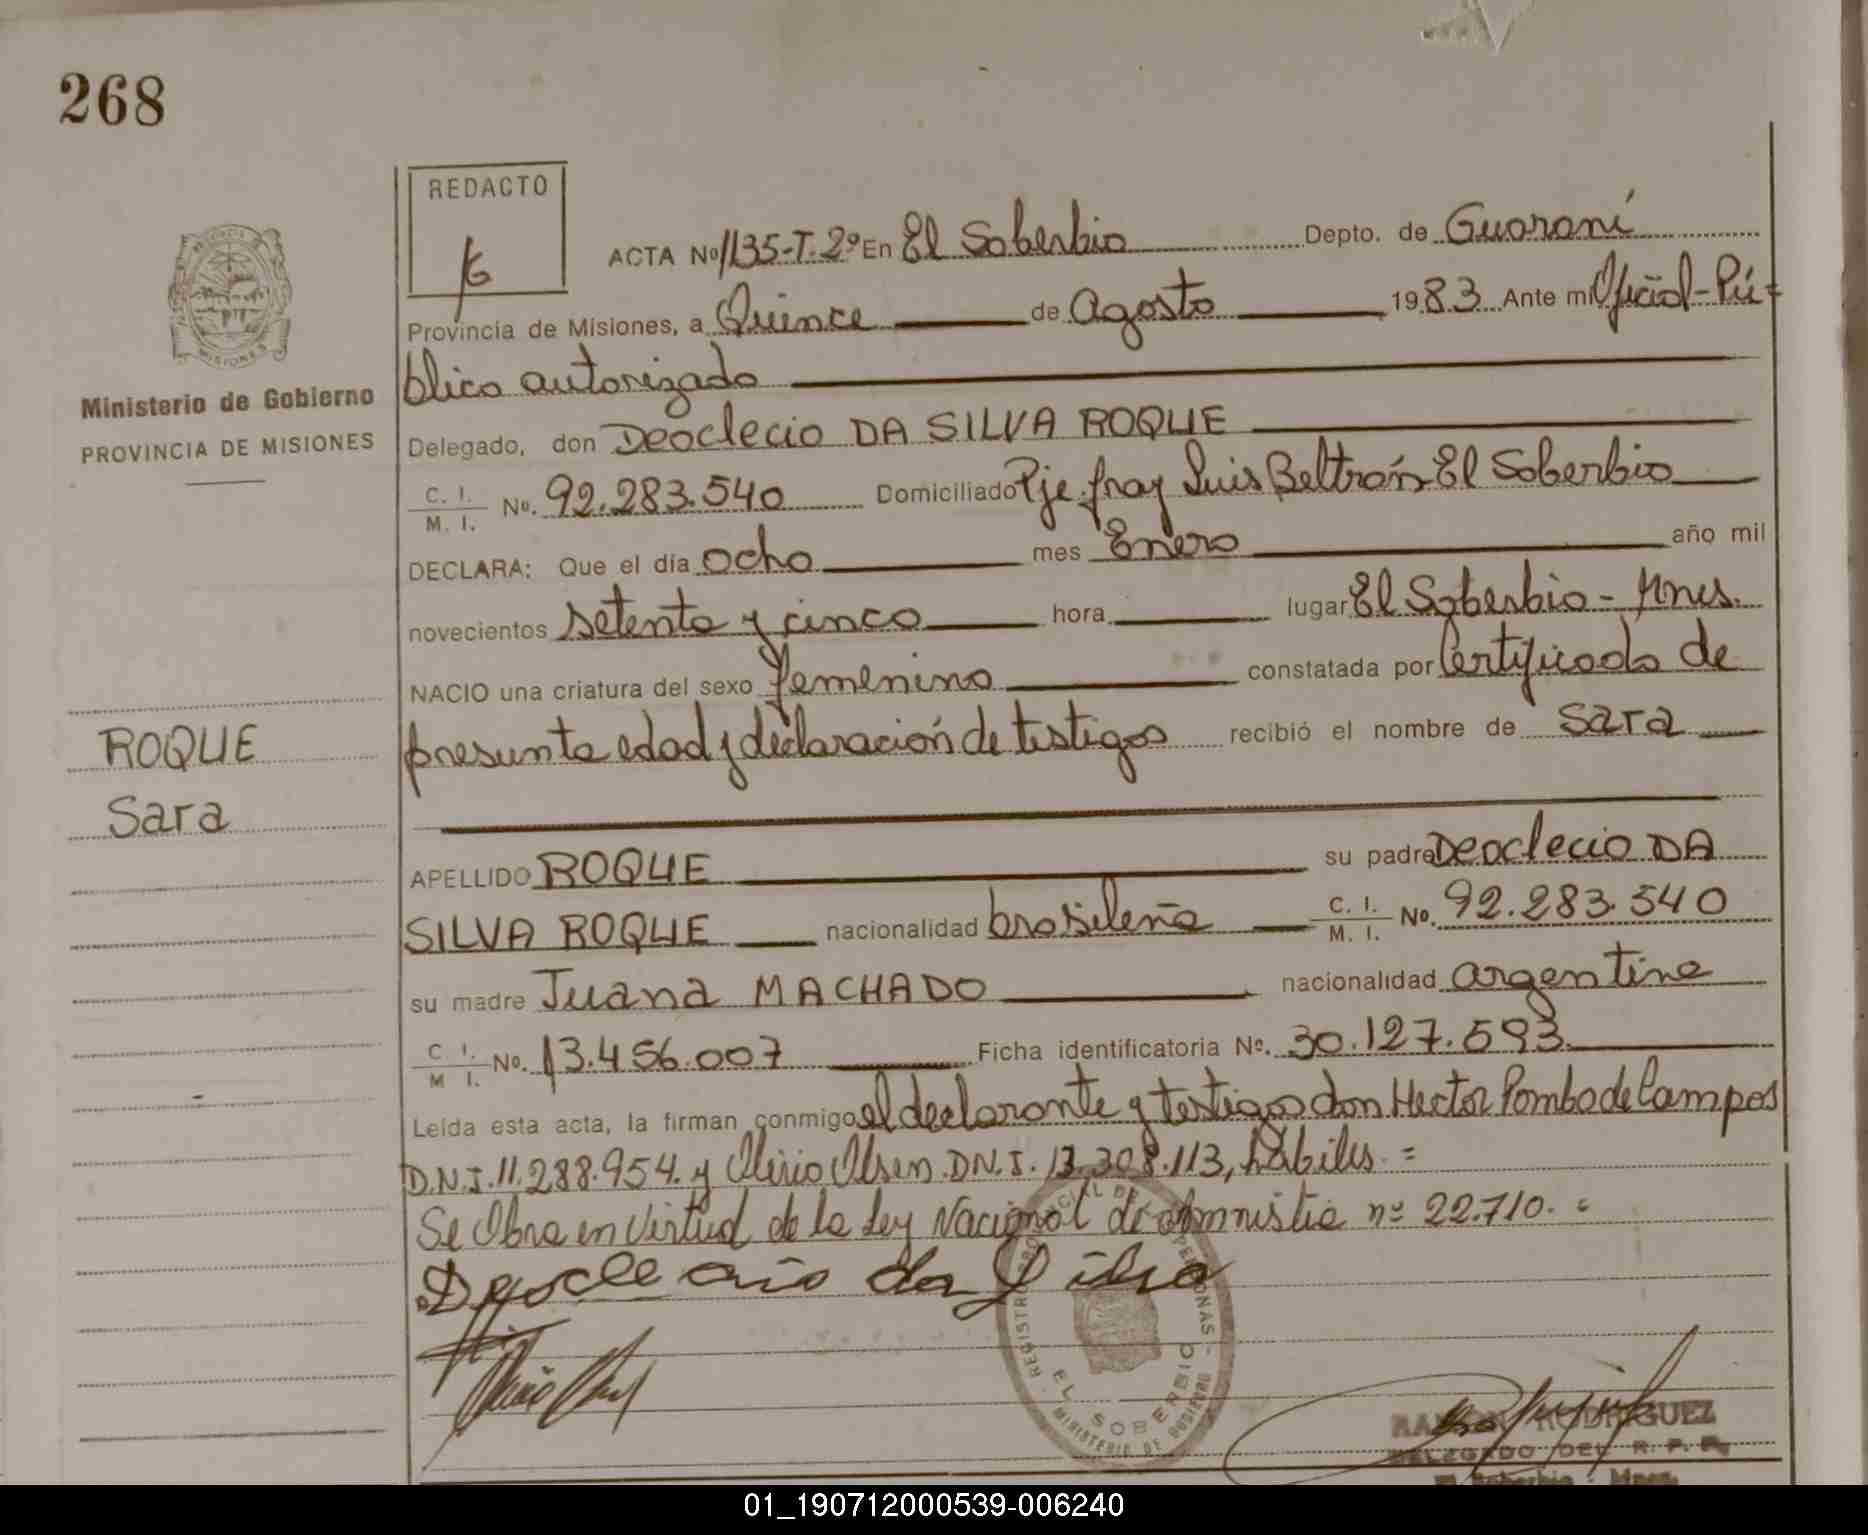 268
REDACTO
ACTA No 1135-T.2º En El Soberbio Depto. de Guaraní
Provincia de Misiones, a Quince de Agosto 1983 Ante mi Oficial-Pú-
blico autorizado
Ministerio de Gobierno
PROVINCIA DE MISIONES
Delegado, don Deoclecio DA SILVA ROQUE
C. I. M. I. No. 92.283.540 Domiciliado Pje. fray Luis Beltrán-El Soberbio
DECLARA: Que el día ocho mes Enero año mil
novecientos setenta y cinco hora lugar El Soberbio - Mnes.
NACIO una criatura del sexo femenino constatada por Certificado de
presunta edad y declaración de testigos recibió el nombre de Sara
ROQUE
Sara
APELLIDO ROQUE su padre Deoclecio DA
SILVA ROQUE nacionalidad brasileña C. I. M. I. No. 92.283.540
su madre Juana MACHADO nacionalidad argentina
C I. M I. No. 13.456.007 Ficha identificatoria No. 30.127.593
Leída esta acta, la firman conmigo el declarante y testigos don Hector Pombo de Campos
D.N.I. 11.288.954. y Olirio Olsen D.N.I. 13.308.113, hábiles. =
Se Obra en Virtud de la Ley Nacional de amnistia nº 22.710. =
Deoclecio da Silva
REGISTRO PROVINCIAL DE PERSONAS
EL SOBERBIO
MINISTERIO DE GOBIERNO
RAMON RODRIGUEZ
DELEGADO DEL R. P. P.
El Soberbio - Mnes.
01_190712000539-006240